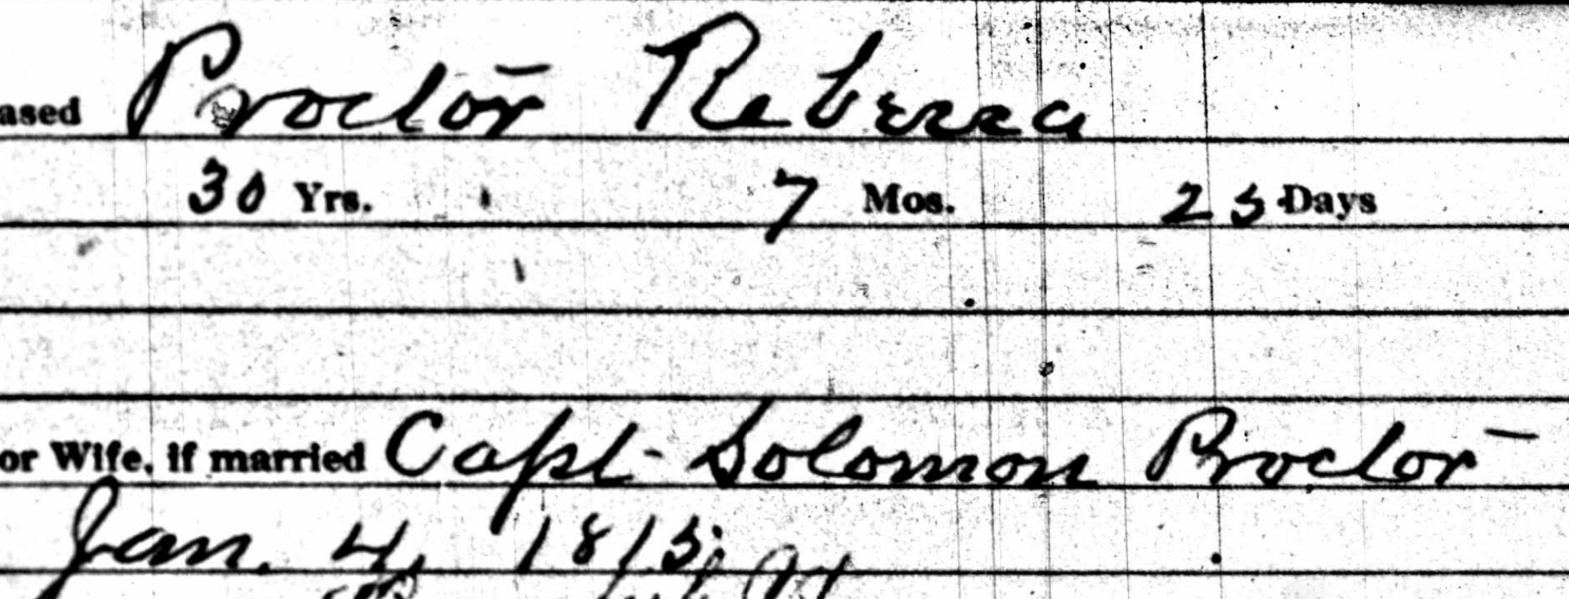 ased Proctor Rebecca
30 Yrs. 7 Mos. 25 Days
or Wife, if married Capt. Solomon Proctor
Jan. 4, 1813;